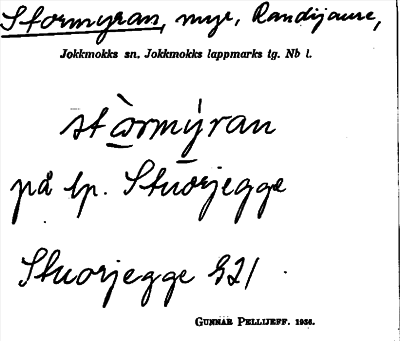 Stormyran, myr, Randijaure,
Jokkmokks sn. Jokkmokks lappmarks tg. Nb l.
stòrmýran
på lp. Stuorjegge
Stuorjegge 921
GUNNAR PELLIJEFF. 1956.